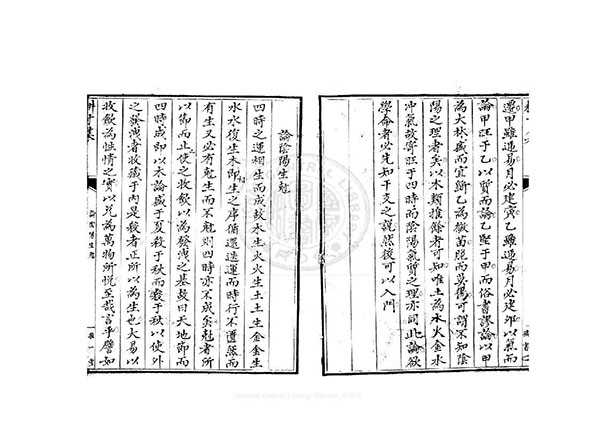 遷甲雖遞易月必建寅乙雖遞易月必建卯以氣而
論甲旺于乙以質而論乙堅于甲而俗書謬論以甲
為大林盛而宜斲乙為微苗脆而莫傷可謂不知陰
陽之理者矣以木類推餘者可知唯土為木火金水
冲氣故寄旺于四時而陰陽氣質之理亦同此論欲
學命者必先知干支之說然後可以入門
論陰陽生剋
四時之運相生而成故木生火火生土土生金金生
水水復生木即相生之序循還迭運而時行不匱然而
有生又必有剋生而不剋則四時亦不成矣剋者所
以節而止使之收斂以為發洩之基故曰天地節而
四時成即以木論盛于夏殺于秋而殺于秋以使外
之發洩者收藏于內是殺者正所以為生也大易以
收斂為性情之實以兌為萬物所悅至哉言乎譬如
論陰陽生剋